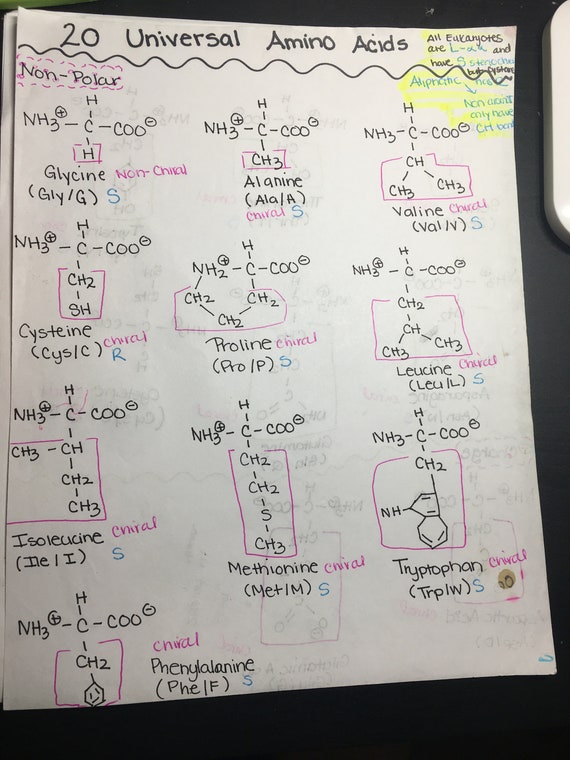 20 Universal Amino Acids
All Eukaryotes
are L-αα and
have S stereochem
but cysteine
Non-Polar
Aliphatic
Non aromatic
only have
CH bond
H
NH3⊕ - C - COO⊖
H
Glycine Non-Chiral
(Gly/G) S
H
NH3⊕ - C - COO⊖
CH3
Alanine
(Ala/A)
chiral S
H
NH3 - C - COO⊖
CH
CH3 CH3
Valine chiral
(Val/V) S
H
NH3⊕ - C - COO⊖
CH2
SH
Cysteine chiral
(Cys/C) R
H
NH2⊕ - C - COO⊖
CH2 CH2
CH2
Proline chiral
(Pro/P) S
H
NH3⊕ - C - COO⊖
CH2
CH
CH3 CH3
Leucine chiral
(Leu/L) S
H
NH3⊕ - C - COO⊖
CH3 - CH
CH2
CH3
Isoleucine chiral
(Ile/I) S
H
NH3⊕ - C - COO⊖
CH2
CH2
S
CH3
Methionine chiral
(Met/M) S
H
NH3 - C - COO⊖
CH2
NH
Tryptophan chiral
(Trp/W) S
H
NH3⊕ - C - COO⊖
CH2
chiral
Phenylalanine
(Phe/F) S